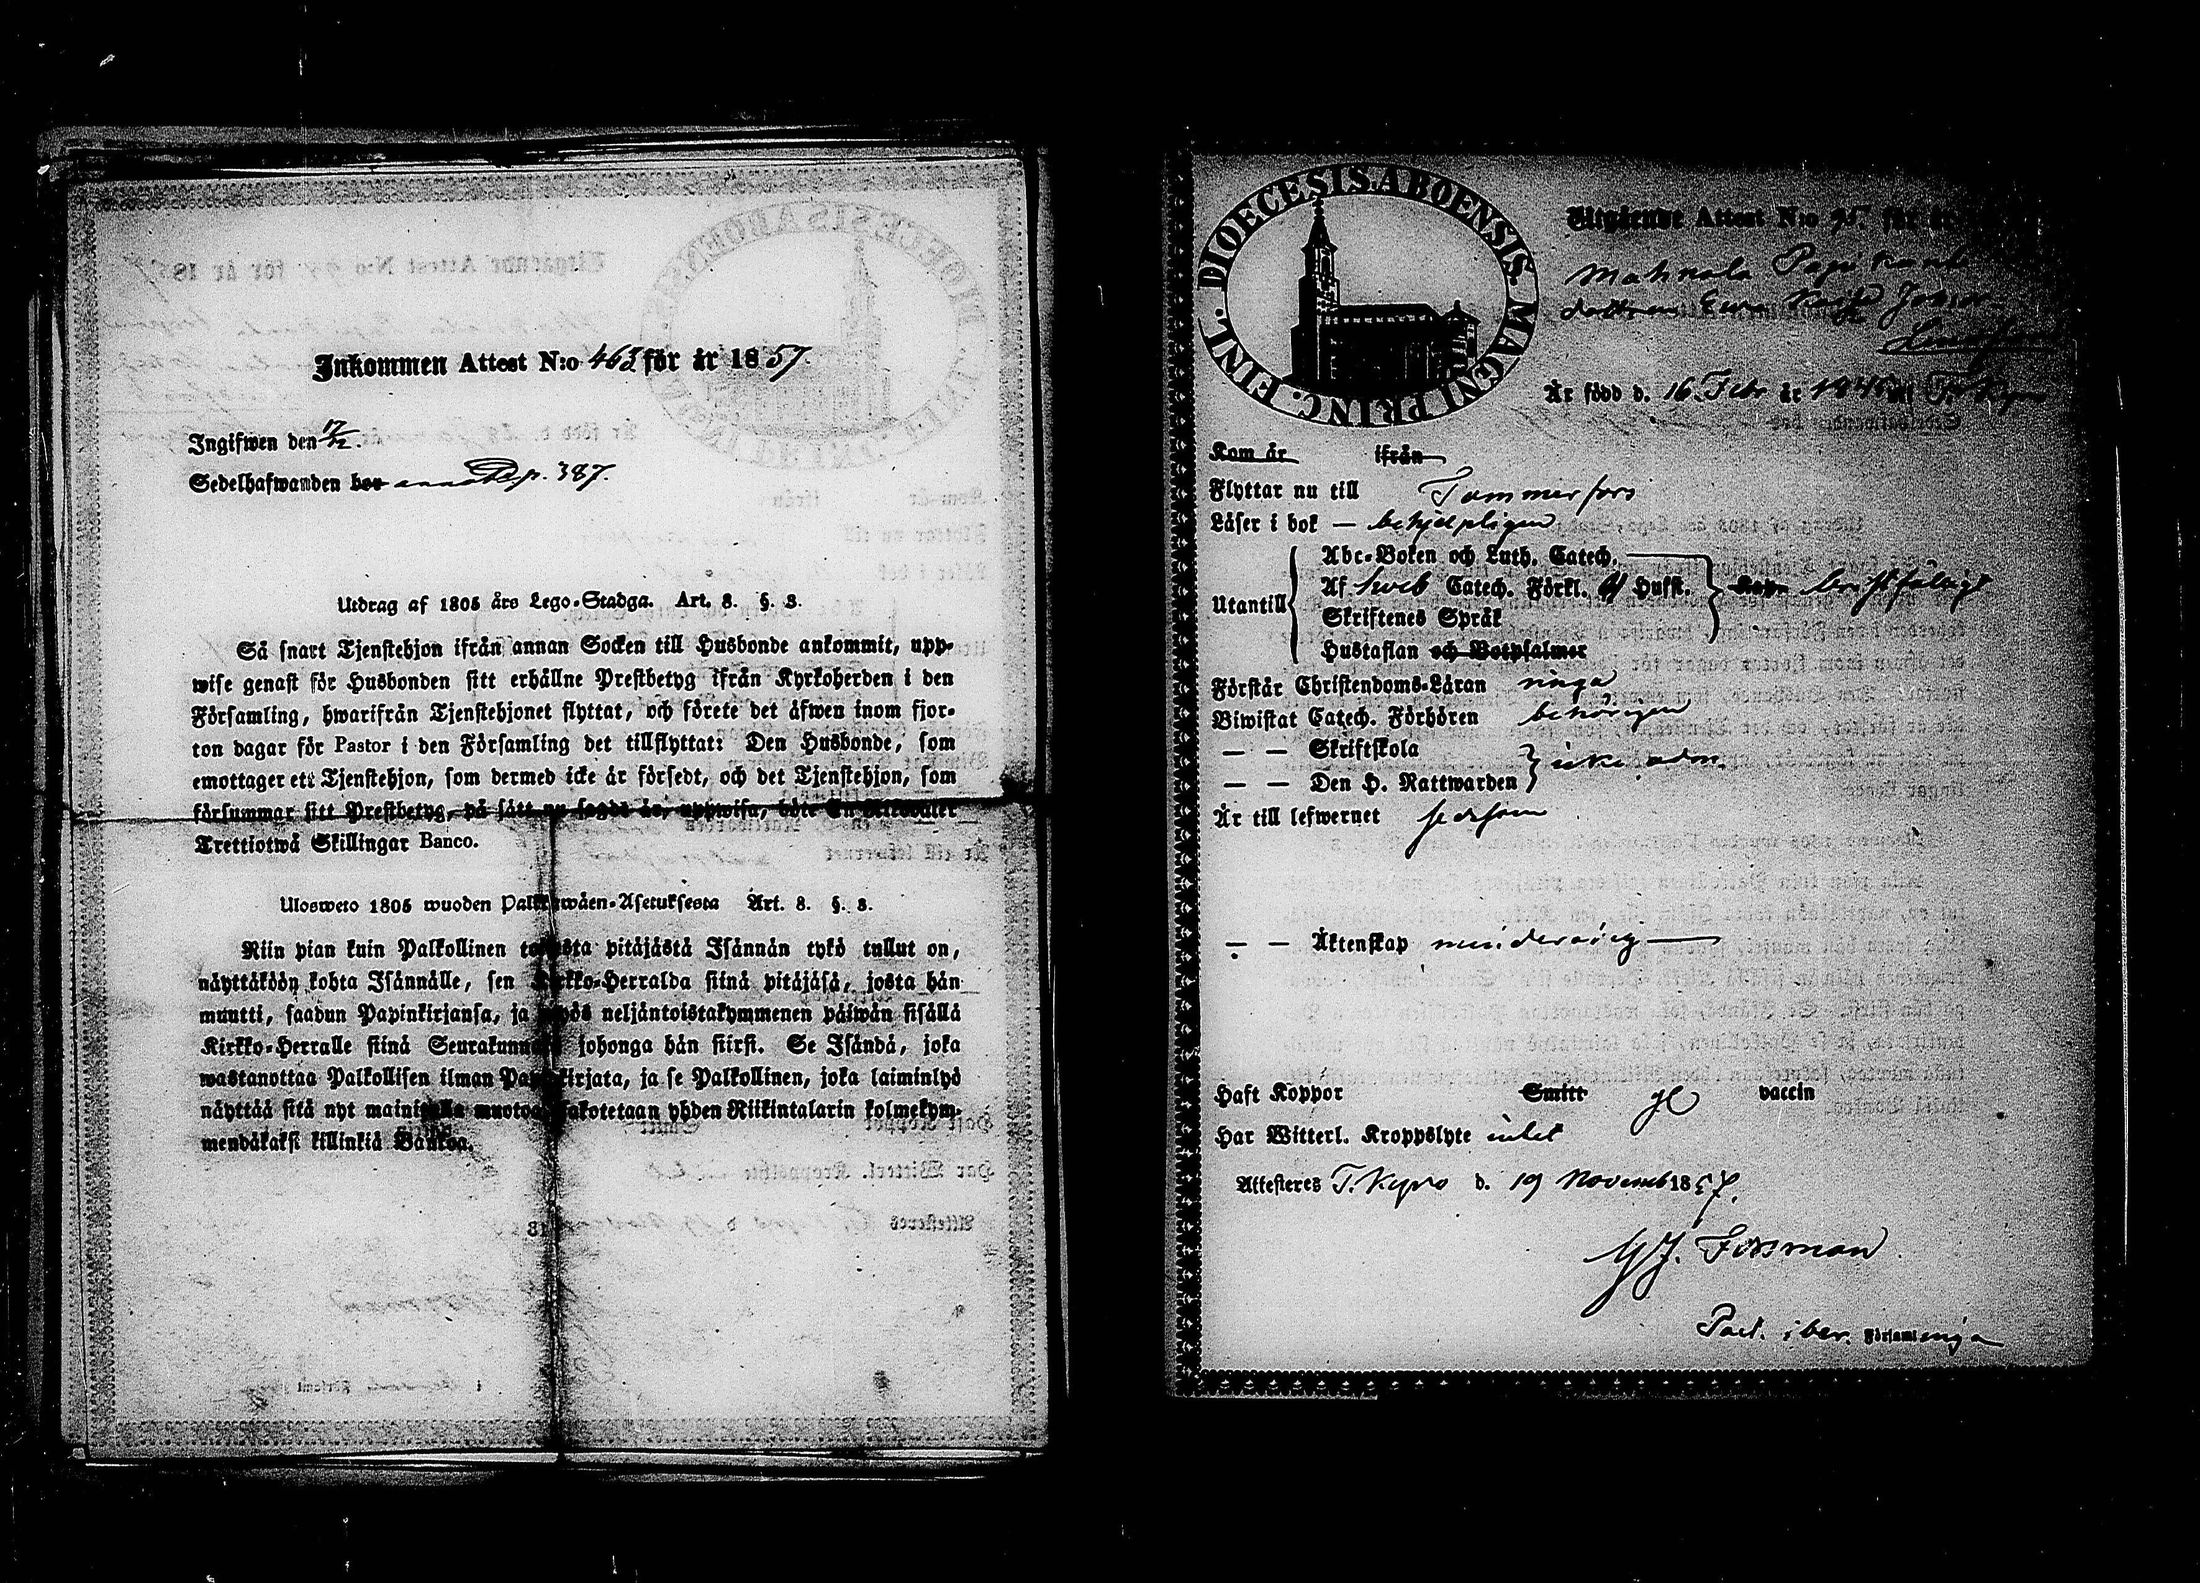 Inkommen Attest N:o 463 för år 1857.
Ingifwen den 17/12.
Sedelhafwanden bor annot. p. 387.
Utdrag af 1805 års Lego-Stadga. Art. 8. §. 3.
Så snart Tjenstehjon ifrån annan Socken till Husbonde ankommit, upp-
wise genast för Husbonden sitt erhållne Prestbetyg ifrån Kyrkoherden i den
Församling, hwarifrån Tjenstehjonet flyttat, och förete det äfwen inom fjor-
ton dagar för Pastor i den Församling det tillflyttat: Den Husbonde, som
emottager ett Tjenstehjon, som dermed icke är försedt, och det Tjenstehjon, som
försummar sitt Prestbetyg, på sätt nu sagdt är, uppwisa, böte En Riksdaler
Trettiotwå Skillingar Banco.
Ulosweto 1805 wuoden Palkkawäen-Asetuksesta Art. 8. §. 3.
Niin pian kuin Palkollinen toisesta pitäjästä Isännän tykö tullut on,
näyttäköön kohta Isännälle, sen Kirkko-Herralda siinä pitäjäsä, josta hän
muutti, saadun Papinkirjansa, ja myös neljäntoistakymmenen päiwän sisällä
Kirkko-Herralle siinä Seurakunnasa johonga hän siirsi. Se Isändä, joka
wastanottaa Palkollisen ilman Papinkirjata, ja se Palkollinen, joka laiminlyö
näyttää sitä nyt mainitulla muotoa, sakotetaan yhden Riikintalarin kolmekym-
mendäkaksi killinkiä Bankoa.
DIOECESIS ABOENSIS MAGNI PRINC. FINL.
Utgående Attest N:o 95 för år
Mahnala
dottren Eva Johns
Är född d. 16 Febr år 1845 i T. Kyro
Kom år ifrån
Flyttar nu till Tammerfors
Läser i bok — behjelpligen
Utantill
Abc-Boken och Luth. Catech.
Af Sveb Catech. Förkl. Hufst.
Skriftenes Språk
Hustaflan och Botpsalmer
bristfälligt
Förstår Christendoms-Läran ringa
Biwistat Catech. Förhören behörigen
— — Skriftskola
— — Den H. Nattwarden
icke adm.
Är till lefwernet sedesam
— — Äktenskap minderårig —
Haft Koppor Smitt gl vaccin
Har Witterl. Kroppslyte intet
Attesteres T. Kyro d. 19 Novemb 1857.
G J. Forsman
Past. i ber. Församlinga